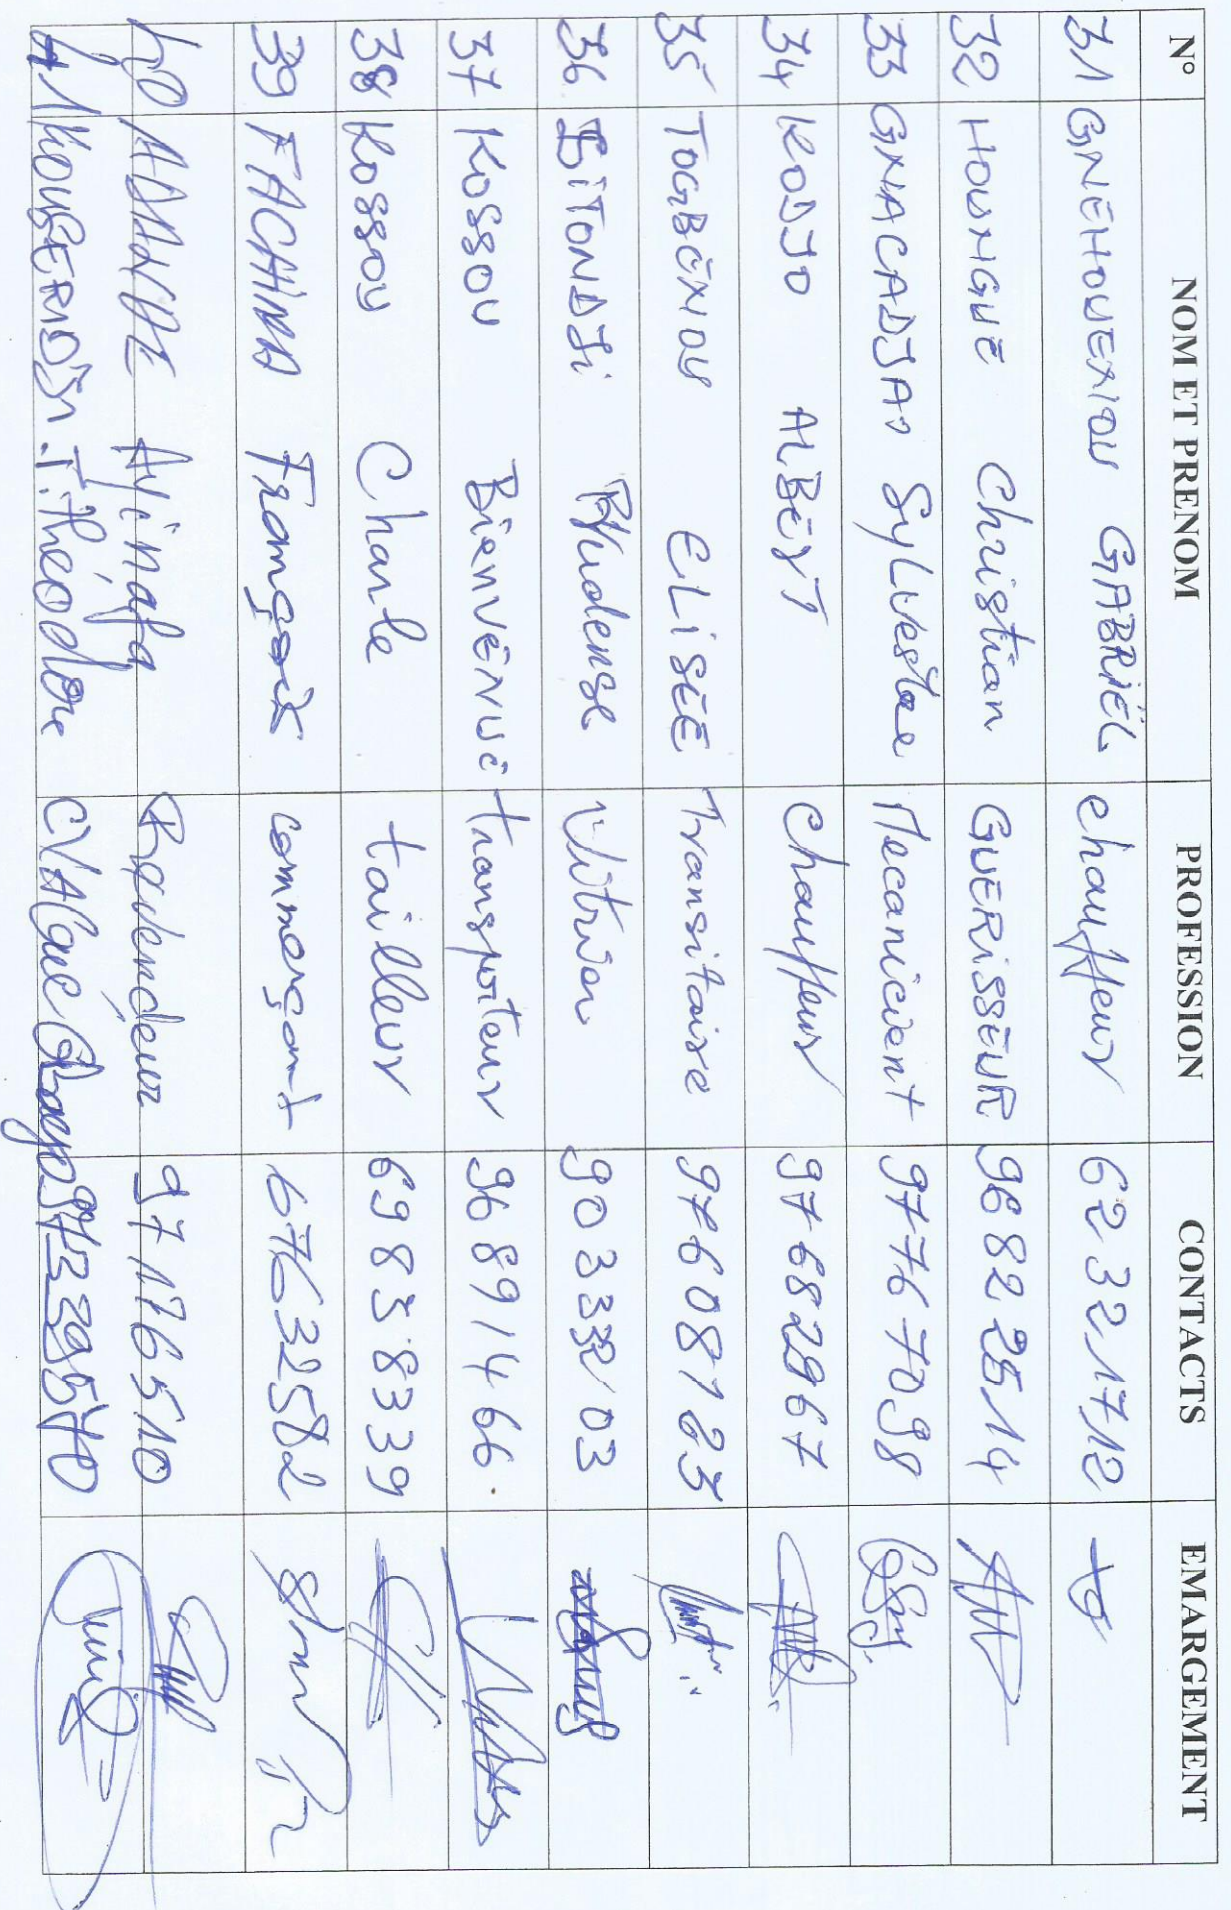 N° NOM ET PRENOM PROFESSION CONTACTS EMARGEMENT
31 GNEHOUENOU GABRIËL chauffeur 62321712
32 HOUNGUE Christian GUERISSEUR 96822514
33 GNACADJAO Sylvestre Mecanicient 97767098
34 KODJO ALBERT Chauffeur 97682967
35 TOGBENOU ELISEE Transitaire 97608123
36 BITONDJi Vitrier
37 KOSSOU Bienvenue transporteur 96891466.
38 Kossou Charle tailleur 69858339
39 FACHINA François commerçant 67632582
40 Ayinafa Revendeur 97176510
41 T. Théodore 97339570